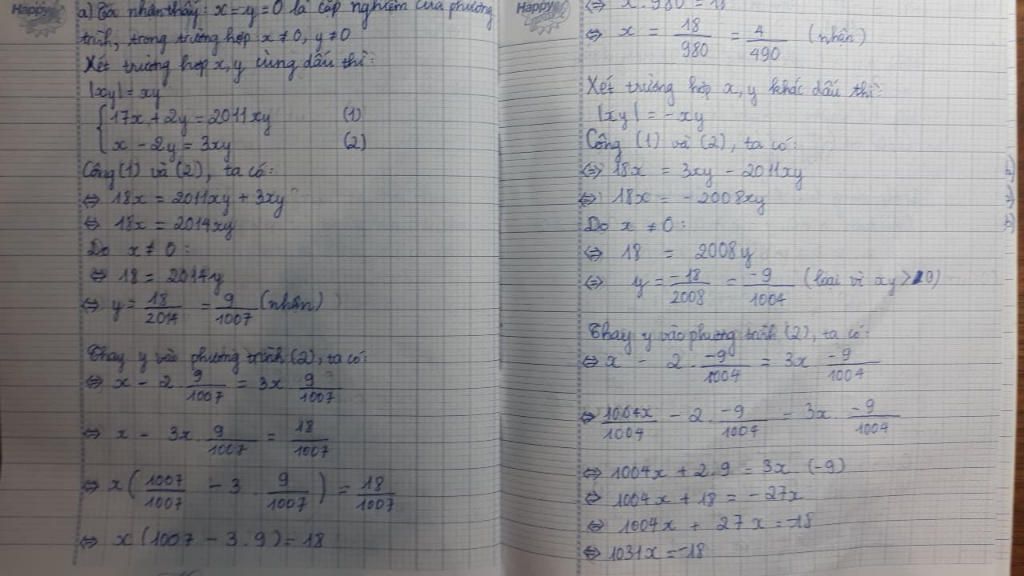 Happy
a) Ta nhận thấy: x = y = 0 là cặp nghiệm của phương
trình, trong trường hợp x ≠ 0, y ≠ 0
Xét trường hợp x, y cùng dấu thì:
|xy| = xy
17x + 2y = 2011xy (1)
x - 2y = 3xy (2)
Cộng (1) và (2), ta có:
⇔ 18x = 2011xy + 3xy
⇔ 18x = 2014xy
Do x ≠ 0:
⇔ 18 = 2014y
⇔ y = 18/2014 = 9/1007 (nhận)
Thay y vào phương trình (2), ta có:
⇔ x - 2 . 9/1007 = 3x 9/1007
⇔ x - 3x 9/1007 = 18/1007
⇔ x (1007/1007 - 3 . 9/1007) = 18/1007
⇔ x (1007 - 3.9) = 18
Happy
⇔ x . 980 = 18
⇔ x = 18/980 = 4/490 (nhận)
Xét trường hợp x, y khác dấu thì:
|xy| = -xy
Cộng (1) và (2), ta có:
⇔ 18x = 3xy - 2011xy
⇔ 18x = -2008xy
Do x ≠ 0:
⇔ 18 = 2008y
⇔ y = -18/2008 = -9/1004 (loại vì xy > 0)
Thay y vào phương trình (2), ta có:
⇔ x - 2 . -9/1004 = 3x -9/1004
⇔ 1004x/1004 - 2 . -9/1004 = 3x . -9/1004
⇔ 1004x + 2.9 = 3x (-9)
⇔ 1004x + 18 = -27x
⇔ 1004x + 27x = -18
⇔ 1031x = -18